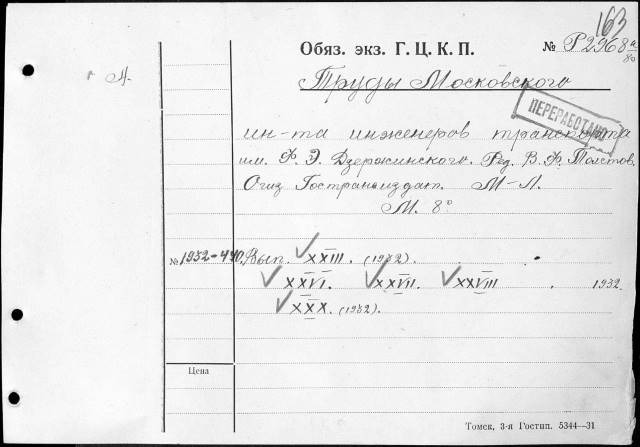 163
Обяз. экз. Г.Ц.К.П. № Р2968а/80
Труды Московского
ПЕРЕРАБОТАНО
ин-та инженеров транспорта
им. Ф. Э. Дзержинского. Ред. В. Ф. Толстов.
Огиз Гострансиздат. М-Л.
М. 8°
№ 1932-440. Вып. XXIII. (1932).
XXVI. XXVII. XXVIII . 1932
XXX. (1932).
Цена
Томск, 3-я Гостип. 5344—31